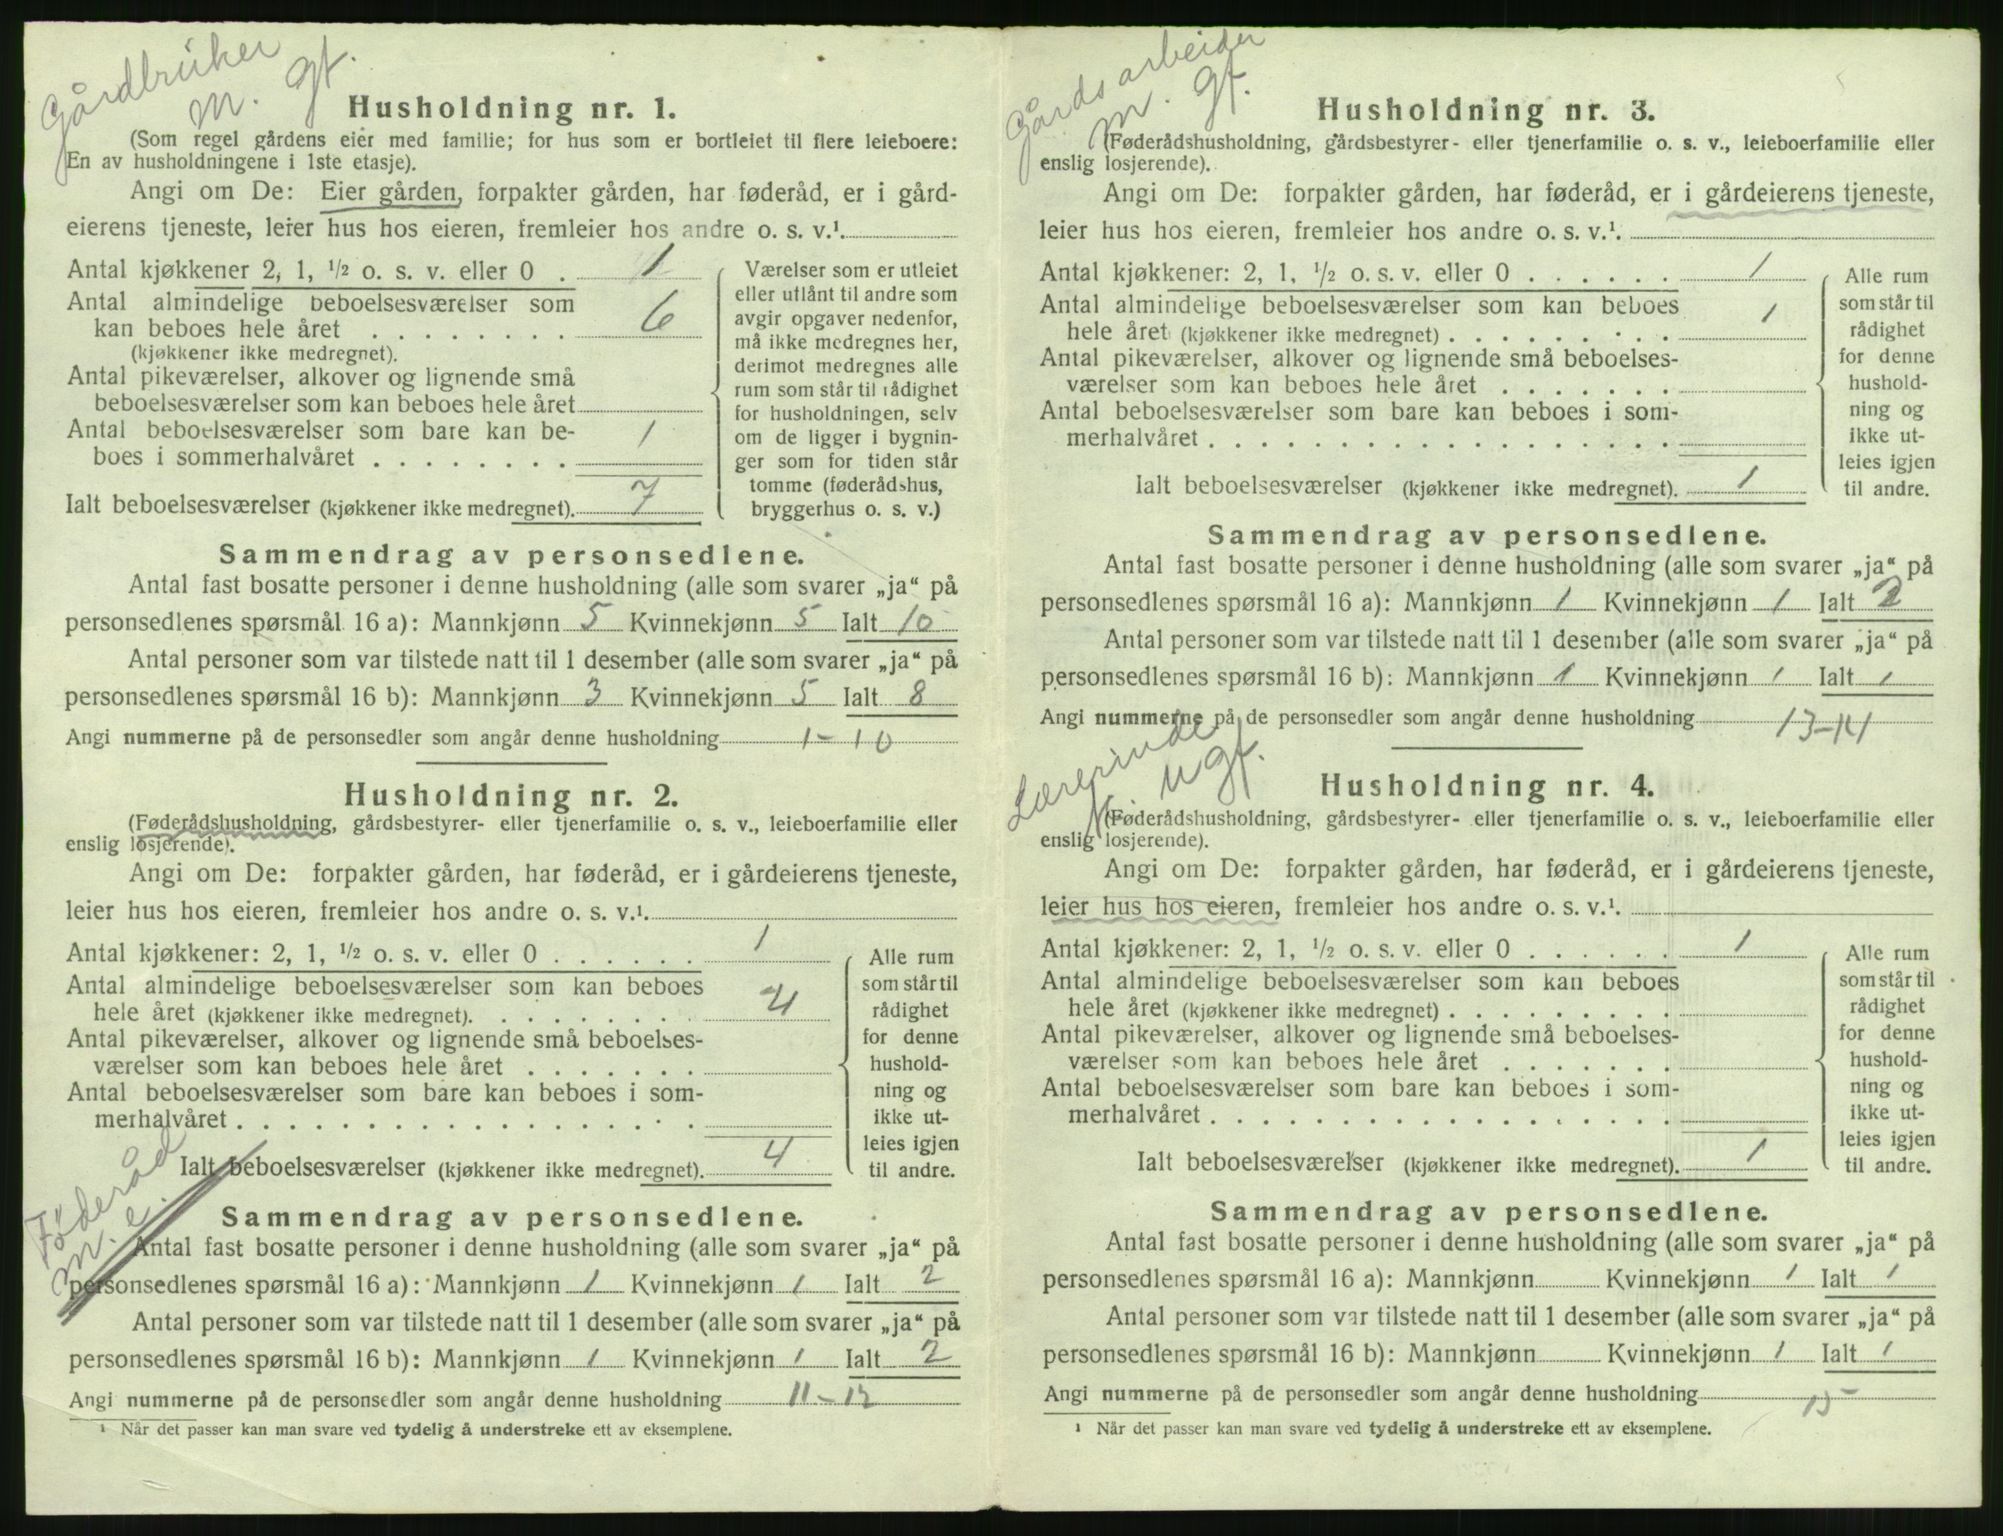 Gårdbruker
M. Gt.
Husholdning nr. 1.
(Som regel gårdens eier med familie; for hus som er bortleiet til flere leieboere:
En av husholdningene i 1ste etasje).
Angi om De: Eier gården, forpakter gården, har føderåd, er i gård-
eierens tjeneste, leier hus hos eieren, fremleier hos andre o. s. v.¹
Antal kjøkkener 2, 1, 1/2 o. s. v. eller 0 . 1
Antal almindelige beboelsesværelser som
kan beboes hele året . . . . . . . . 6
(kjøkkener ikke medregnet).
Antal pikeværelser, alkover og lignende små
beboelsesværelser som kan beboes hele året
Antal beboelsesværelser som bare kan be-
boes i sommerhalvåret . . . . . . . . 1
Ialt beboelsesværelser (kjøkkener ikke medregnet). 7
Værelser som er utleiet
eller utlånt til andre som
avgir opgaver nedenfor,
må ikke medregnes her,
derimot medregnes alle
rum som står til rådighet
for husholdningen, selv
om de ligger i bygnin-
ger som for tiden står
tomme (føderådshus,
bryggerhus o. s. v.)
Sammendrag av personsedlene.
Antal fast bosatte personer i denne husholdning (alle som svarer „ja“ på
personsedlenes spørsmål 16 a): Mannkjønn 5 Kvinnekjønn 5 Ialt 10
Antal personer som var tilstede natt til 1 desember (alle som svarer „ja“ på
personsedlenes spørsmål 16 b): Mannkjønn 3 Kvinnekjønn 5 Ialt 8
Angi nummerne på de personsedler som angår denne husholdning 1-10
Husholdning nr. 2.
(Føderådshusholdning, gårdsbestyrer- eller tjenerfamilie o. s. v., leieboerfamilie eller
enslig losjerende).
Angi om De: forpakter gården, har føderåd, er i gårdeierens tjeneste,
leier hus hos eieren, fremleier hos andre o. s. v.¹
Antal kjøkkener: 2, 1, 1/2 o. s. v. eller 0 . . . . . . 1
Antal almindelige beboelsesværelser som kan beboes
hele året (kjøkkener ikke medregnet). . . . . . . . . 4
Antal pikeværelser, alkover og lignende små beboelses-
værelser som kan beboes hele året . . . . . . .
Antal beboelsesværelser som bare kan beboes i som-
merhalvåret . . . . . . . . . . . . . . . . . .
Ialt beboelsesværelser (kjøkkener ikke medregnet). 4
Alle rum
som står til
rådighet
for denne
hushold-
ning og
ikke ut-
leies igjen
til andre.
Føderåd
M. e.
Sammendrag av personsedlene.
Antal fast bosatte personer i denne husholdning (alle som svarer „ja“ på
personsedlenes spørsmål 16 a): Mannkjønn 1 Kvinnekjønn 1 Ialt 2
Antal personer som var tilstede natt til 1 desember (alle som svarer „ja“ på
personsedlenes spørsmål 16 b): Mannkjønn 1 Kvinnekjønn 1 Ialt 2
Angi nummerne på de personsedler som angår denne husholdning 11-12
¹ Når det passer kan man svare ved tydelig å understreke ett av eksemplene.
Gårdsarbeider
M. Gt.
Husholdning nr. 3.
(Føderådshusholdning, gårdsbestyrer- eller tjenerfamilie o. s. v., leieboerfamilie eller
enslig losjerende).
Angi om De: forpakter gården, har føderåd, er i gårdeierens tjeneste,
leier hus hos eieren, fremleier hos andre o. s. v.¹
Antal kjøkkener: 2, 1, 1/2 o. s. v. eller 0 . . . . . . 1
Antal almindelige beboelsesværelser som kan beboes
hele året (kjøkkener ikke medregnet) . . . . . . . . . 1
Antal pikeværelser, alkover og lignende små beboelses-
værelser som kan beboes hele året . . . . . . .
Antal beboelsesværelser som bare kan beboes i som-
merhalvåret . . . . . . . . . . . . . . . . . .
Ialt beboelsesværelser (kjøkkener ikke medregnet). 1
Alle rum
som står til
rådighet
for denne
hushold-
ning og
ikke ut-
leies igjen
til andre.
Sammendrag av personsedlene.
Antal fast bosatte personer i denne husholdning (alle som svarer „ja“ på
personsedlenes spørsmål 16 a): Mannkjønn 1 Kvinnekjønn 1 Ialt 2
Antal personer som var tilstede natt til 1 desember (alle som svarer „ja“ på
personsedlenes spørsmål 16 b): Mannkjønn 1 Kvinnekjønn 1 Ialt 1
Angi nummerne på de personsedler som angår denne husholdning 13-14
Lærerinde
ugt.
Husholdning nr. 4.
(Føderådshusholdning, gårdsbestyrer- eller tjenerfamilie o. s. v., leieboerfamilie eller
enslig losjerende).
Angi om De: forpakter gården, har føderåd, er i gårdeierens tjeneste,
leier hus hos eieren, fremleier hos andre o. s. v.¹
Antal kjøkkener: 2, 1, 1/2 o. s. v. eller 0 . . . . . . 1
Antal almindelige beboelsesværelser som kan beboes
hele året (kjøkkener ikke medregnet) . . . . . . . . .
Antal pikeværelser, alkover og lignende små beboelses-
værelser som kan beboes hele året . . . . . . .
Antal beboelsesværelser som bare kan beboes i som-
merhalvåret . . . . . . . . . . . . . . . . . .
Ialt beboelsesværelser (kjøkkener ikke medregnet). 1
Alle rum
som står til
rådighet
for denne
hushold-
ning og
ikke ut-
leies igjen
til andre.
Sammendrag av personsedlene.
Antal fast bosatte personer i denne husholdning (alle som svarer „ja“ på
personsedlenes spørsmål 16 a): Mannkjønn Kvinnekjønn 1 Ialt 1
Antal personer som var tilstede natt til 1 desember (alle som svarer „ja“ på
personsedlenes spørsmål 16 b): Mannkjønn Kvinnekjønn 1 Ialt 1
Angi nummerne på de personsedler som angår denne husholdning 15
¹ Når det passer kan man svare ved tydelig å understreke ett av eksemplene.